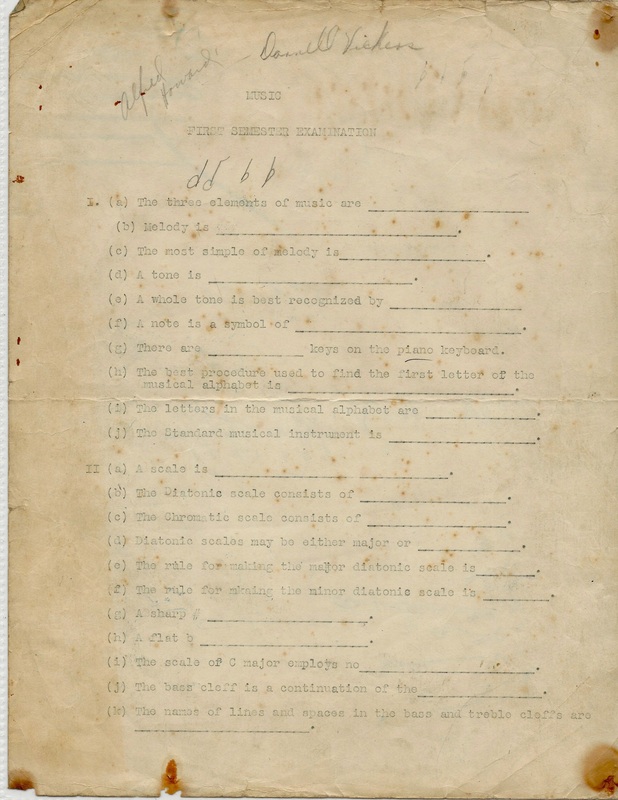 Alfred
Howard
Darnell Vickers
MUSIC
FIRST SEMESTER EXAMINATION
I. (a) The three elements of music are ____________
(b) Melody is ____________.
(c) The most simple of melody is____________.
(d) A tone is ____________.
(e) A whole tone is best recognized by ____________
(f) A note is a symbol of ____________.
(g) There are ________ keys on the piano keyboard.
(h) The best procedure used to find the first letter of the
musical alphabet is ____________.
(i) The letters in the musical alphabet are ____________.
(j) The Standard musical instrument is ____________.
II (a) A scale is ____________.
(b) The Diatonic scale consists of ____________.
(c) The Chromatic scale consists of ____________.
(d) Diatonic scales may be either major or ____________.
(e) The rule for making the major diatonic scale is________.
(f) The rule for mkaing the minor diatonic scale is ________.
(g) A sharp # ____________.
(h) A flat b ____________.
(i) The scale of C major employs no ____________.
(j) The bass cleff is a continuation of the____________.
(k) The names of lines and spaces in the bass and treble cleffs are
____________.